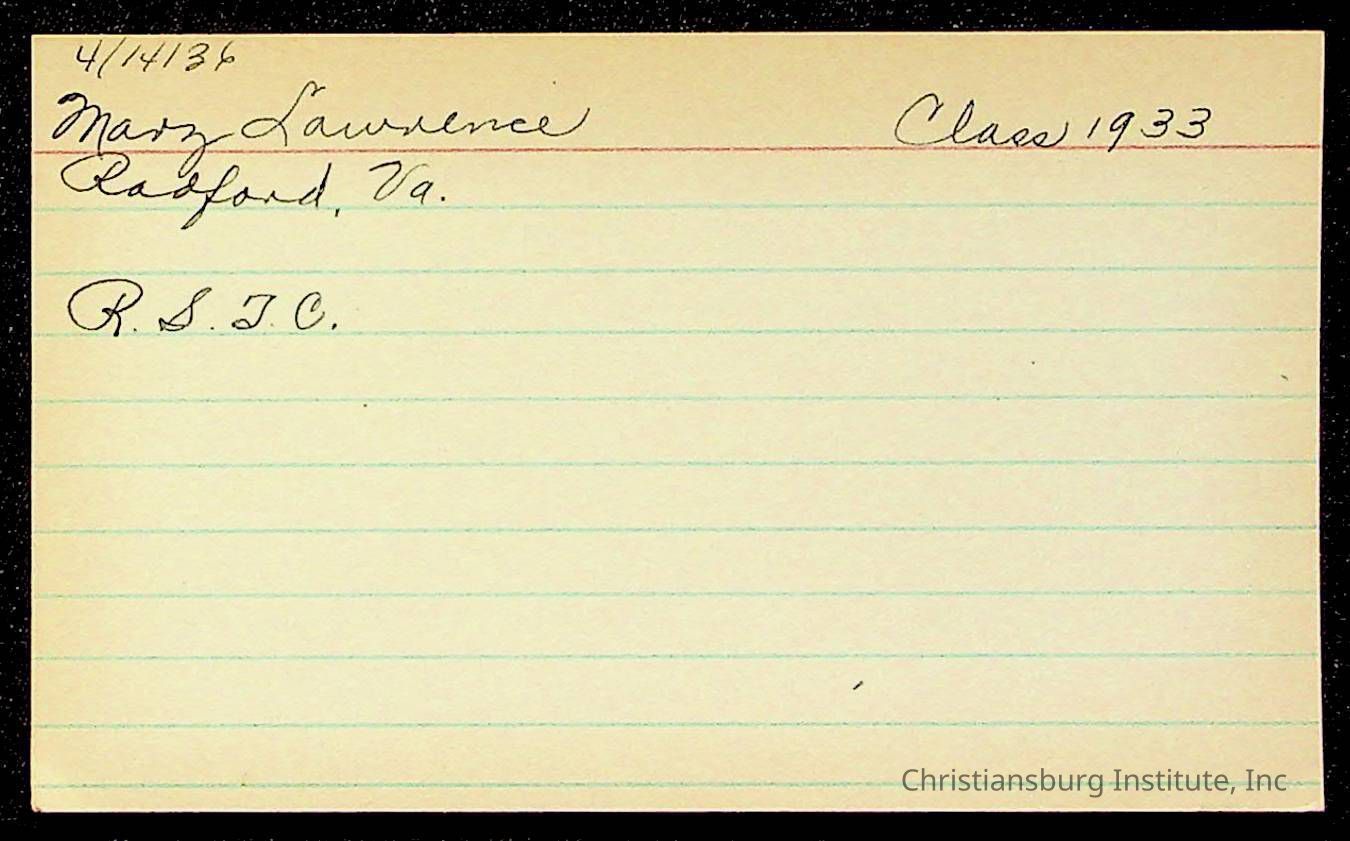 4/14/36
Mary Lawrence Class 1933
Radford, Va.
R. S. T. C.
Christiansburg Institute, Inc